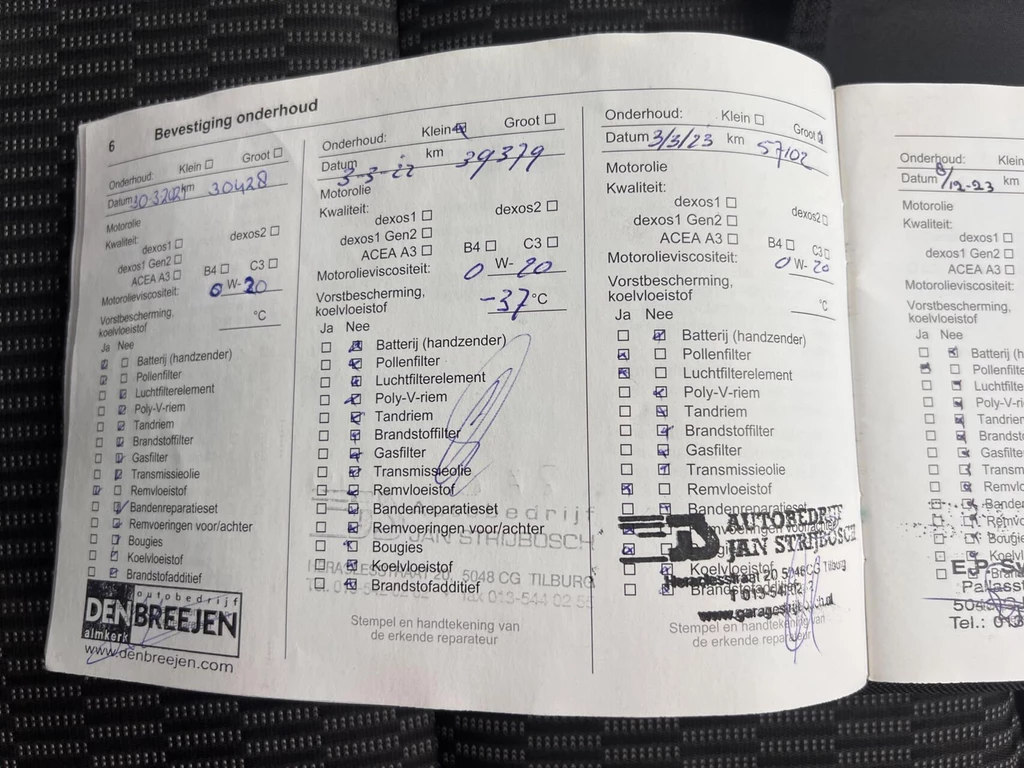 6 Bevestiging onderhoud
Onderhoud: Klein Groot
Datum 30-3-2021 km 30428
Motorolie
Kwaliteit:
dexos1 dexos2
dexos1 Gen2
ACEA A3 B4 C3
Motorolieviscositeit: 0 W-20
Vorstbescherming,
koelvloeistof °C
Ja Nee
Batterij (handzender)
Pollenfilter
Luchtfilterelement
Poly-V-riem
Tandriem
Brandstoffilter
Gasfilter
Transmissieolie
Remvloeistof
Bandenreparatieset
Remvoeringen voor/achter
Bougies
Koelvloeistof
Brandstofadditief
autobedrijf
DEN BREEJEN
almkerk
www.denbreejen.com
Onderhoud: Klein Groot
Datum 3-3-22 km 39379
Motorolie
Kwaliteit:
dexos1 dexos2
dexos1 Gen2
ACEA A3 B4 C3
Motorolieviscositeit: 0 W-20
Vorstbescherming,
koelvloeistof -37 °C
Ja Nee
Batterij (handzender)
Pollenfilter
Luchtfilterelement
Poly-V-riem
Tandriem
Brandstoffilter
Gasfilter
Transmissieolie
Remvloeistof
Bandenreparatieset
Remvoeringen voor/achter
JAN STRIJBOSCH
Bougies
Koelvloeistof
20, 5048 CG TILBURG
Brandstofadditief
Stempel en handtekening van
de erkende reparateur
Onderhoud: Klein Groot
Datum 3/3/23 km 57102
Motorolie
Kwaliteit:
dexos1 dexos2
dexos1 Gen2
ACEA A3 B4 C3
Motorolieviscositeit: 0 W-20
Vorstbescherming,
koelvloeistof °C
Ja Nee
Batterij (handzender)
Pollenfilter
Luchtfilterelement
Poly-V-riem
Tandriem
Brandstoffilter
Gasfilter
Transmissieolie
Remvloeistof
Bandenreparatieset
AUTOBEDRIJF
JAN STRIJBOSCH
Koelvloeistof
Heraclesstraat 20 5048CG Tilburg
Stempel en handtekening van
de erkende reparateur
Onderhoud: Klein
Datum 8/12-23 km
Motorolie
Kwaliteit:
dexos1
dexos1 Gen2
ACEA A3
Motorolieviscositeit:
Vorstbescherming,
koelvloeistof
Ja Nee
Batterij (h
Pollenfilte
Luchtfilte
Poly-V-ri
Tandriem
Brandsto
Gasfilter
Transm
Remvlo
Banden
Remvo
Bougie
Koelvl
Brand
Pallass
Tel.: 013